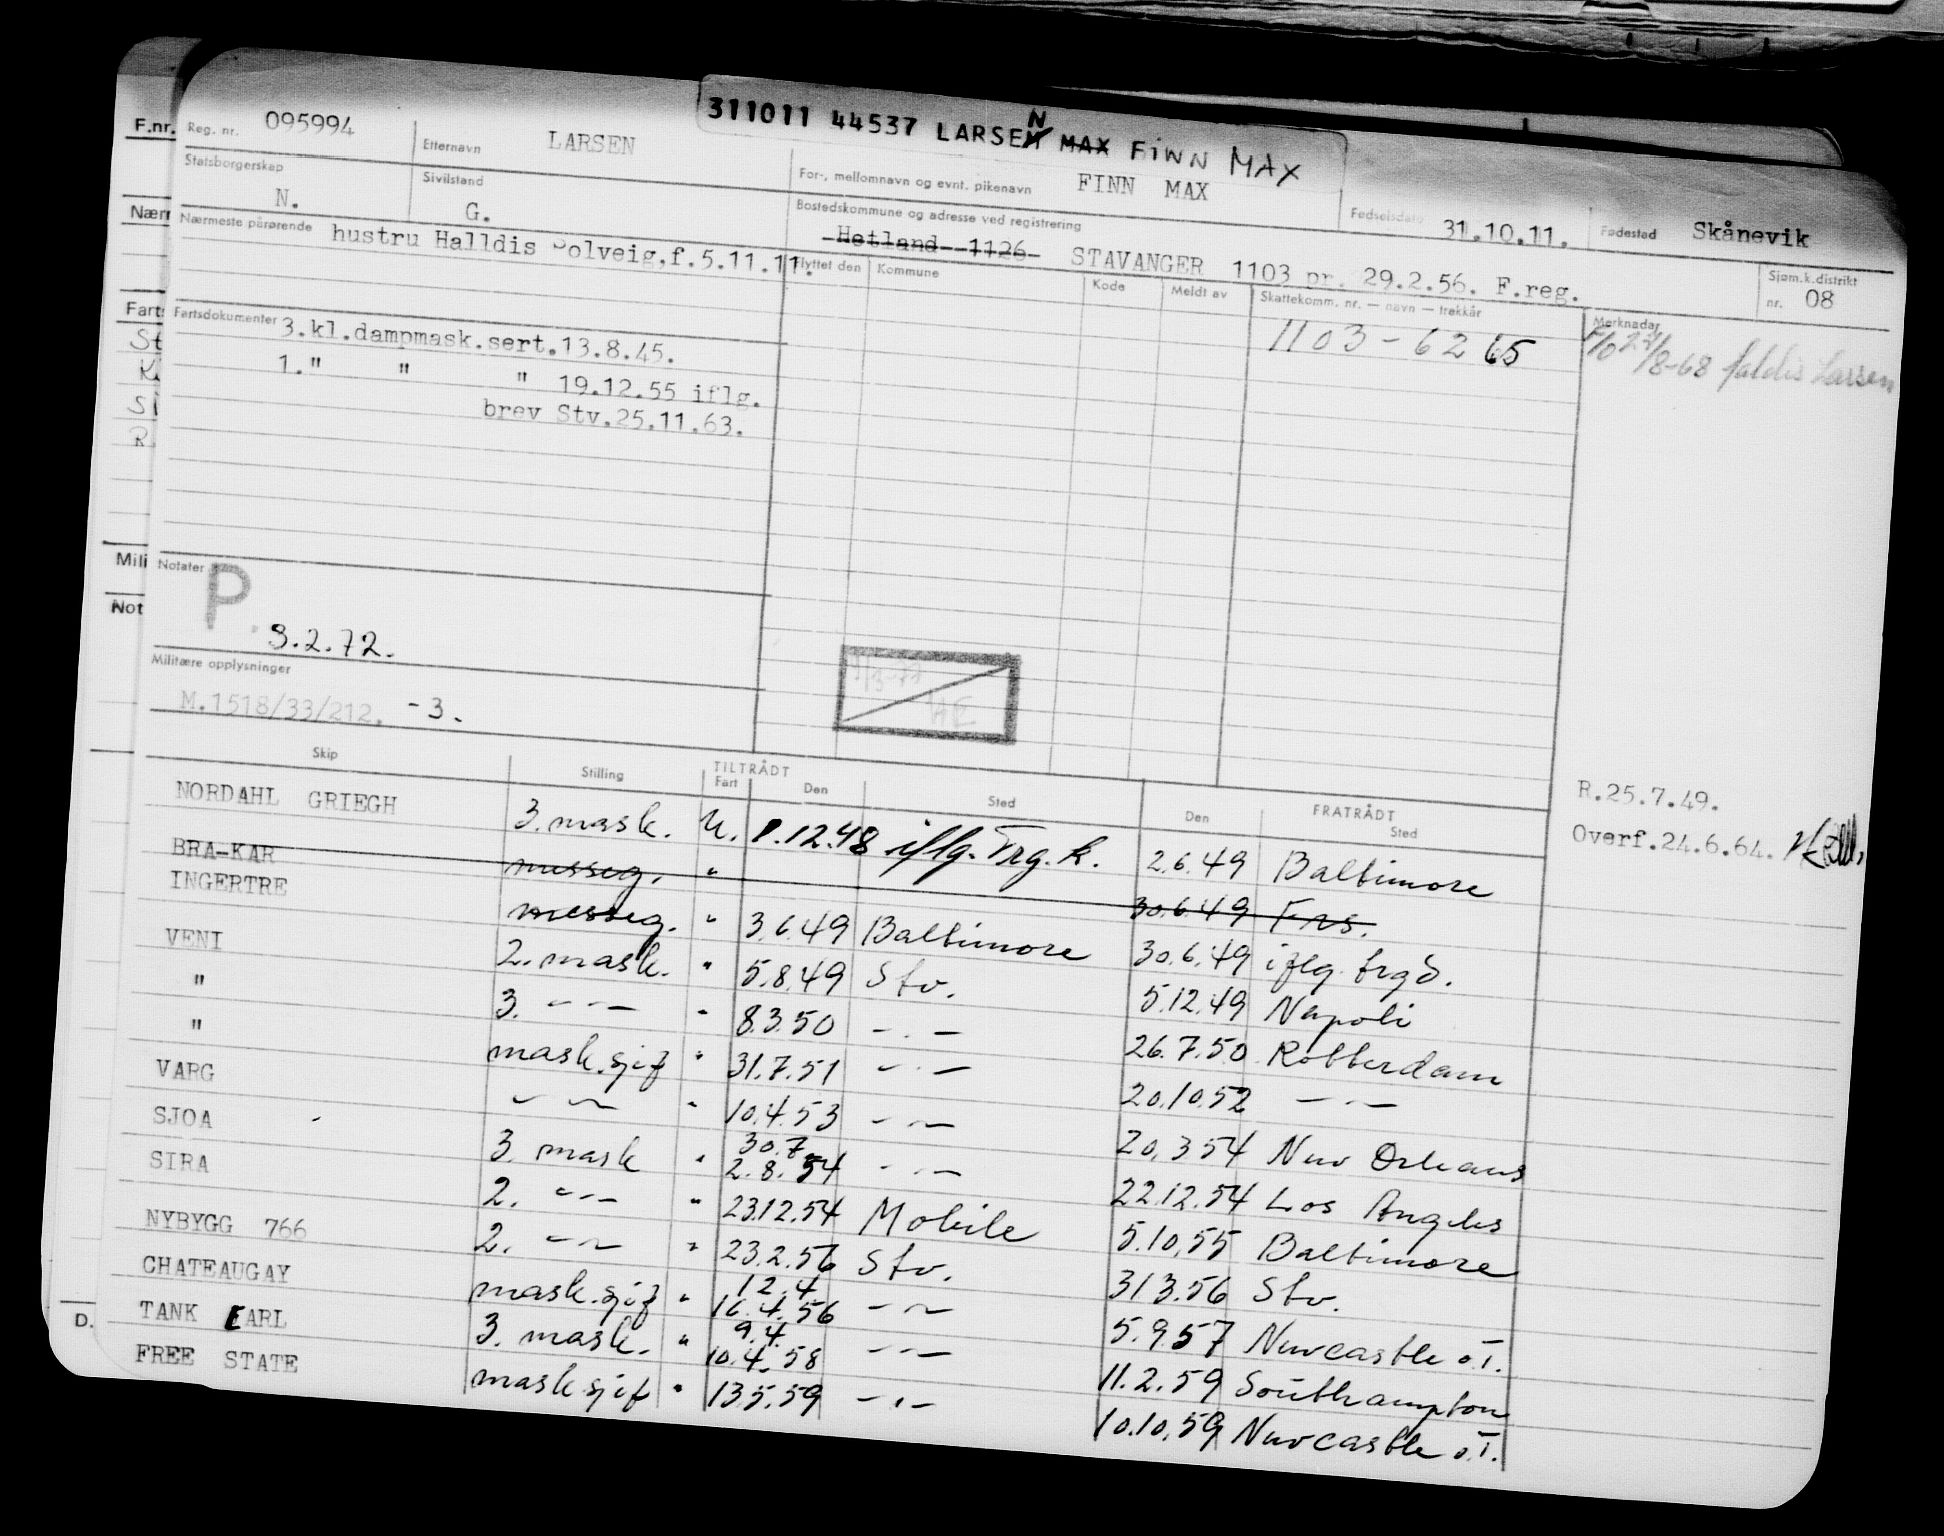 311011 44537 LARSEN N MAX FINN MAX
F.nr. Reg. nr. 095994 Etternavn LARSEN For-, mellomnavn og evnt. pikenavn FINN MAX Fødselsdato 31.10.11. Fødested Skånevik
Statsborgerskap N. Sivilstand G. Bostedskommune og adresse ved registrering Hetland 1126 STAVANGER 1103 pr. 29.2.56. F.reg. Sjøm.k.distrikt nr. 08
Nærmeste pårørende hustru Halldis Solveig,f.5.11.11. Flyttet den Kommune Kode Meldt av Skattekomm. nr. — navn — trekkår Merknader
1103 - 62 65
27/8-68 Larsen
Fartsdokumenter 3.kl.dampmask.sert.13.8.45.
1." " " 19.12.55 iflg.
brev Stv.25.11.63.
Mili Notater
P
Not
3.2.72.
Militære opplysninger
M.1518/33/212. -3.
R.25.7.49.
Overf.24.6.64.
Skip Stilling TILTRÅDT Fart Den Sted FRATRÅDT Den Sted
NORDAHL GRIEGH 3. mask. U. 1.12.48 iflg. Frg. k. 2.6.49 Baltimore
BRA-KAR messeg. " 30.6.49 Frs.
INGERTRE messeg. " 3.6.49 Baltimore 30.6.49 iflg. frgd.
VENI 2. mask. " 5.8.49 Stv. 5.12.49 Napoli
" 3. - " - " 8.3.50 - " - 26.7.50 Rotterdam
" mask.sjef " 31.7.51 - " - 20.10.52 - " -
VARG - " - " 10.4.53 - " - 20.3.54 New Orleans
SJOA 3. mask " 30.7. 2.8.54 - " - 22.12.54 Los Angeles
SIRA 2. - " - " 23.12.54 Mobile 5.10.55 Baltimore
NYBYGG 766 2. - " - " 23.2.56 Stv. 31.3.56 Stv.
CHATEAUGAY mask.sjef " 12.4 16.4.56 - " - 5.9.57 Newcastle o.T.
TANK EARL 3. mask. " 9.4. 10.4.58 - " - 11.2.59 Southampton
FREE STATE mask.sjef " 13.5.59 - " - 10.10.59 Newcastle o.T.
D.